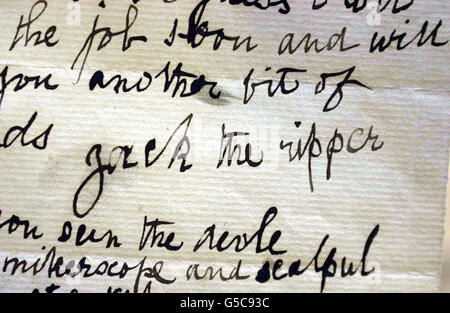 the job soon and will
you another bit of
ds
Jack the ripper
you seen the devle
mikerscope and scalpul
a
alamy
Image ID: G5C93C
www.alamy.com